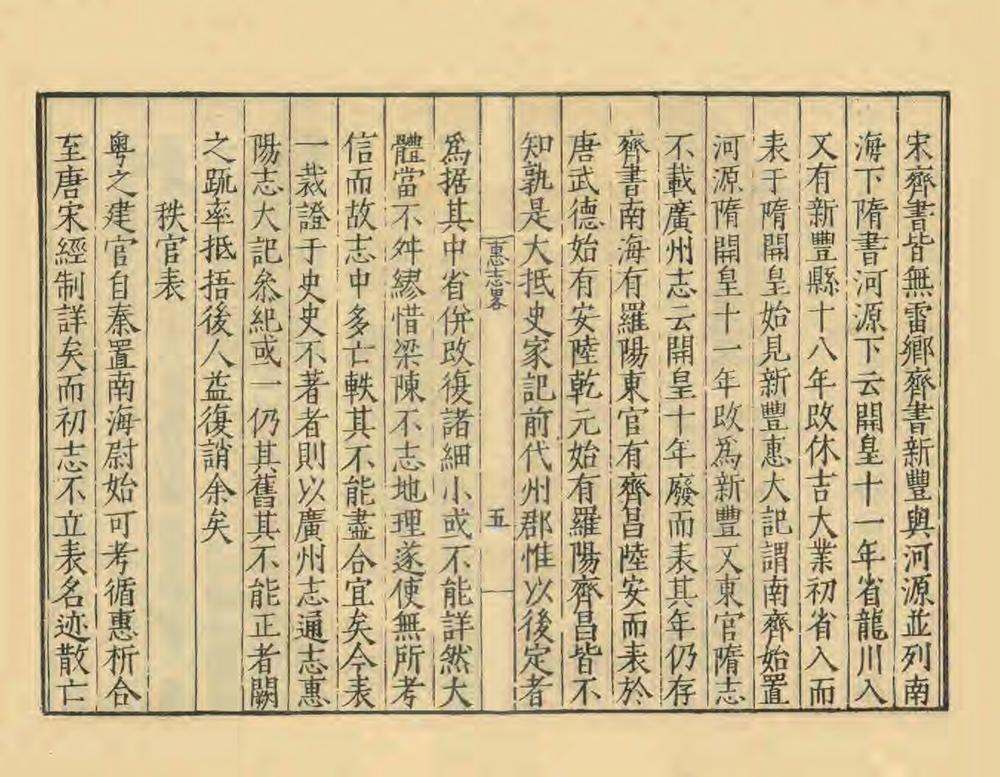 宋齊書皆無雷鄉齊書新豐與河源並列南
海下隋書河源下云開皇十一年省龍川入
又有新豐縣十八年改休吉大業初省入而
表于隋開皇始見新豐惠大記謂南齊始置
河源隋開皇十一年改爲新豐又東官隋志
不載廣州志云開皇十年廢而表其年仍存
齊書南海有羅陽東官有齊昌陸安而表於
唐武德始有安陸乾元始有羅陽齊昌皆不
知孰是大抵史家記前代州郡惟以後定者
惠志畧
五
爲据其中省併改復諸細小或不能詳然大
體當不舛繆惜梁陳不志地理遂使無所考
信而故志中多亡軼其不能盡合宜矣今表
一裁證于史史不著者則以廣州志通志惠
陽志大記叅紀或一仍其舊其不能正者闕
之䟽率抵捂後人益復誚余矣
秩官表
粤之建官自秦置南海尉始可考循惠析合
至唐宋經制詳矣而初志不立表名迹散亡